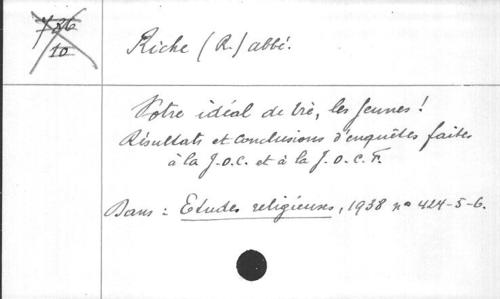 786
10
Riche (R.) abbé.
Votre idéal de vie, les jeunes !
Résultats et conclusions d'enquêtes faites
à la J.O.C. et à la J.O.C.F.
Dans : Etudes religieuses, 1938 n° 424-5-6.